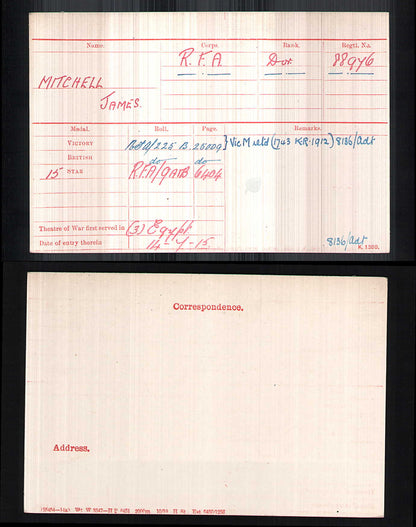 Name. Corps. Rank. Regtl. No.
MITCHELL R.F.A. Dvr 88976
JAMES.
Medal. Roll. Page. Remarks.
VICTORY RFA/225 B. 25009 } Vic M retd (1743 KR. 1912) 8136/Adt
BRITISH do do
15 STAR R.F.A/9A & B 6404
Theatre of War first served in (3) Egypt
Date of entry therein 14-7-15
8136/Adt
K. 1380.
Correspondence.
Address.